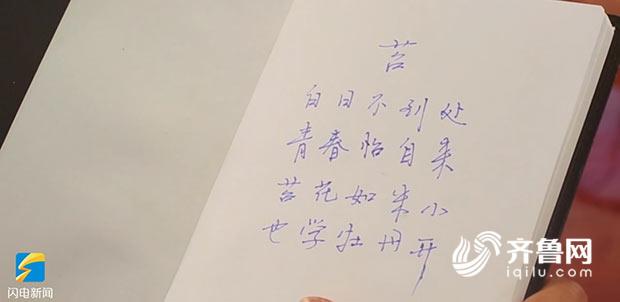 苔
白日不到处
青春恰自来
苔花如米小
也学牡丹开
闪电新闻
齐鲁网
iqilu.com